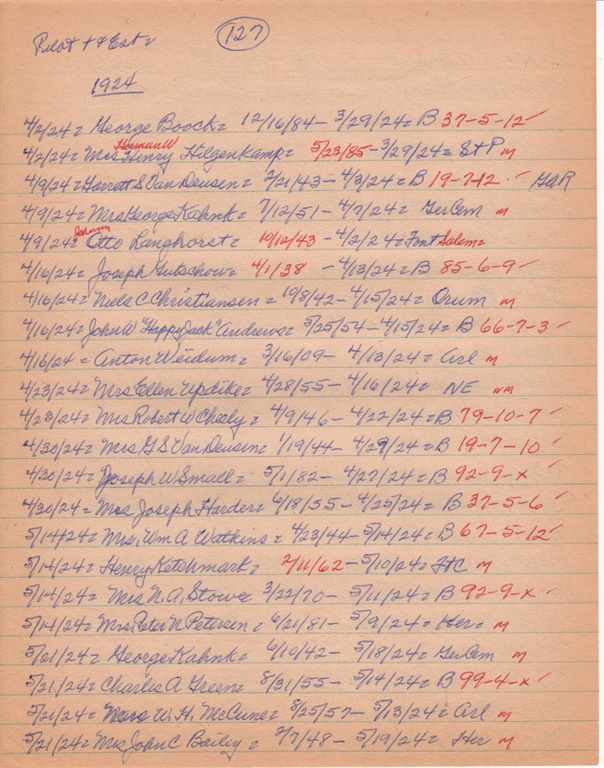 Pilot + & Ent =
127
1924
4/2/24 = George Boock = 12/16/84 - 3/29/24 = B 37-5-12 ✓
Herman W
4/2/24 = Mrs Henry Hilgenkamp = 5/23/85 - 3/29/24 = St P m
4/9/24 = Garrett S Van Deusen = 2/21/43 - 4/3/24 = B 19-7-12 ✓ GAR
4/9/24 = Mrs George Kahnk = 7/12/51 - 4/7/24 = Ger Cem m
Johann
4/9/24 = Otto Langhorst = 10/12/43 - 4/2/24 = Font Salem =
4/16/24 = Joseph Gutschow = 4/1/38 - 4/13/24 = B 85-6-9 ✓
4/16/24 = Niels C Christiansen = 10/8/42 - 4/15/24 = Orum m
4/16/24 = John W "Happy Jack" Andrews = 5/25/54 - 4/15/24 = B 66-7-3 ✓
4/16/24 = Anton Weidum = 3/16/09 - 4/13/24 = Arl m
4/23/24 = Mrs Ellen Updike = 4/28/55 - 4/16/24 = NE nm
4/23/24 = Mrs Robert W Cheely = 4/9/46 - 4/22/24 = B 79-10-7 ✓
4/30/24 = Mrs G S Van Deusen = 1/19/44 - 4/29/24 = B 19-7-10 ✓
4/30/24 = Joseph W Small = 5/1/82 - 4/27/24 = B 92-9-x ✓
4/30/24 = Mrs Joseph Harder = 6/18/55 - 4/25/24 = B 37-5-6 ✓
5/14/24 = Mrs. Wm A Watkins = 4/23/44 - 5/14/24 = B 67-5-12 ✓
5/14/24 = Henry Ketchmark = 2/11/62 - 5/10/24 = FtC m
5/14/24 = Mrs N. A. Stowe 3/22/70 - 5/11/24 = B 92-9-x ✓
5/14/24 = Mrs. Peter N Petersen = 6/21/81 - 5/9/24 = Her = m
5/21/24 = George Kahnk = 6/10/42 - 5/18/24 = Ger Cem m
5/21/24 = Charles A Green = 8/31/55 - 5/14/24 = B 99-4-x ✓
5/21/24 = Mrs W. H. McCune = 8/25/57 - 5/13/24 = Arl m
5/21/24 = Mrs John C Bailey = 2/7/48 - 5/19/24 = Her m